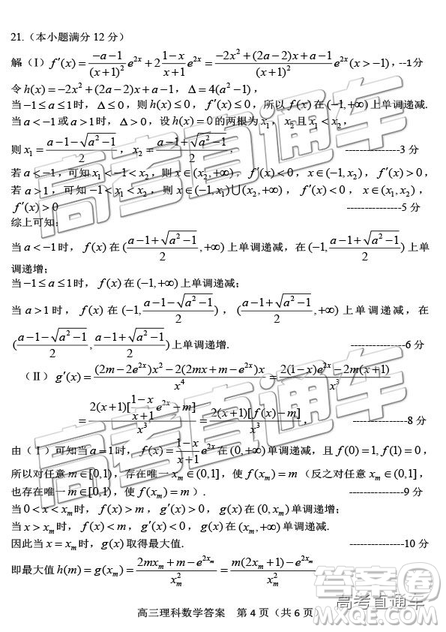 21.（本小题满分 12 分）
解（Ⅰ）f′(x)=\frac{-a-1}{(x+1)^2}e^{2x}+2\frac{1-x}{x+1}e^{2x}=\frac{-2x^2+(2a-2)x+a-1}{(x+1)^2}e^{2x}(x>-1)，--1分
令 h(x)=-2x^2+(2a-2)x+a-1，Δ=4(a^2-1)，
当 -1≤a≤1时，Δ≤0，则 h(x)≤0，f′(x)≤0，所以 f(x)在(-1,+∞)上单调递减.
当 a<-1或 a>1时，Δ>0，设 h(x)=0 的两根为 x_1，x_2且 x_1<x_2，
则 x_1=\frac{a-1-\sqrt{a^2-1}}{2}，x_2=\frac{a-1+\sqrt{a^2-1}}{2}， --------------3 分
若 a<-1，可知 x_1<-1<x_2，则
若 a>1，可知 -1<x_1<x_2，则 x∈(-1,x_1)∪(x_2,+∞)，
f′(x)>0 --------------5 分
综上可知：
当 a<-1时，f(x)在(\frac{a-1+\sqrt{a^2-1}}{2},+∞)上单调递减，在(-1,\frac{a-1+\sqrt{a^2-1}}{2})上单
调递增；
当 -1≤a≤1时，f(x)在(-1,+∞)上单调递减；
当 a>1时，f(x)在(-1,\frac{a-1-\sqrt{a^2-1}}{2})，(\frac{a-1+\sqrt{a^2-1}}{2},+∞)上单调递减，在
(\frac{a-1-\sqrt{a^2-1}}{2},\frac{a-1+\sqrt{a^2-1}}{2})上单调递增. --------------6 分
（Ⅱ）g′(x)=\frac{(2m-2e^{2x})x^2-2(2mx+m-e^{2x})x}{x^4}=\frac{2(1-x)e^{2x}-2m(x+1)}{x^3}
=\frac{2(x+1)[\frac{1-x}{x+1}e^{2x}-m]}{x^3}=\frac{2(x+1)[f(x)-m]}{x^3}， --------8 分
由（Ⅰ）可知当 a=1时，f(x)=\frac{1-x}{x+1}e^{2x}在(0,+∞)单调递减，
所以对任意 m∈[0,1)，存在唯一 x_m∈(0,1]，使 f(x_m)=m（反之对任意 x_m∈(0,1]，
也存在唯一的 m∈[0,1)，使 f(x_m)=m）. --------------9 分
当 0<x<x_m时，f(x)>m，g′(x)>0，函数 g(x)单调递增；
当 x>x_m时，f(x)<m，g′(x)<0，函数 g(x)单调递减.
因此当 x=x_m时，g(x)取得最大值. --------------10 分
即最大值 h(m)=g(x_m)=\frac{2mx_m+m-e^{2x_m}}{x_m^2}=\frac{m(2x_m+1)-e^{2x_m}}{x_m^2}
高三理科数学答案 第 4 页（共 6 页）
高考直通车
高考直通车
答案圈
高考直通车